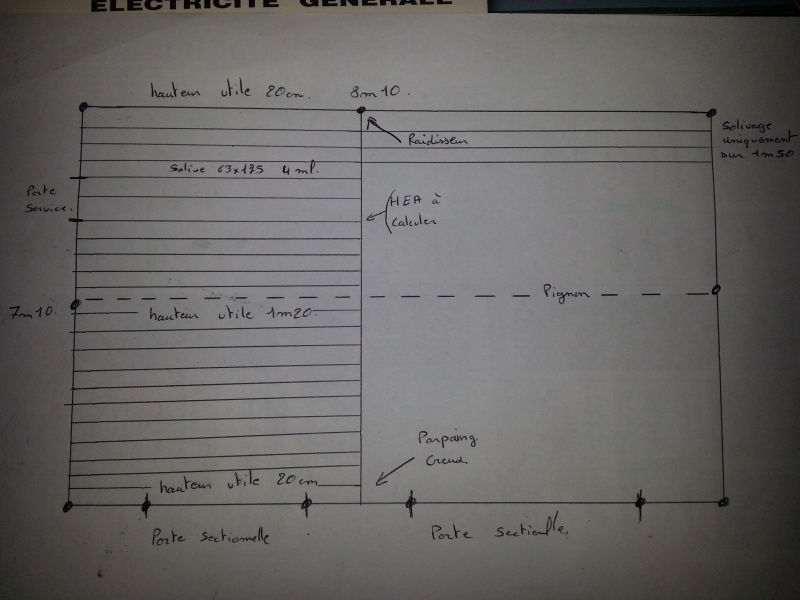 ELECTRICITE GENERALE
hauteur utile 20cm. 8m10.
Solivage
uniquement
sur 1m50
Raidisseur
Solive 63x175 4 ml.
Porte
Service.
HEA à
Calculer
Pignon
7m10.
hauteur utile 1m20.
Parpaing
Creux
hauteur utile 20cm
Porte sectionnelle
Porte